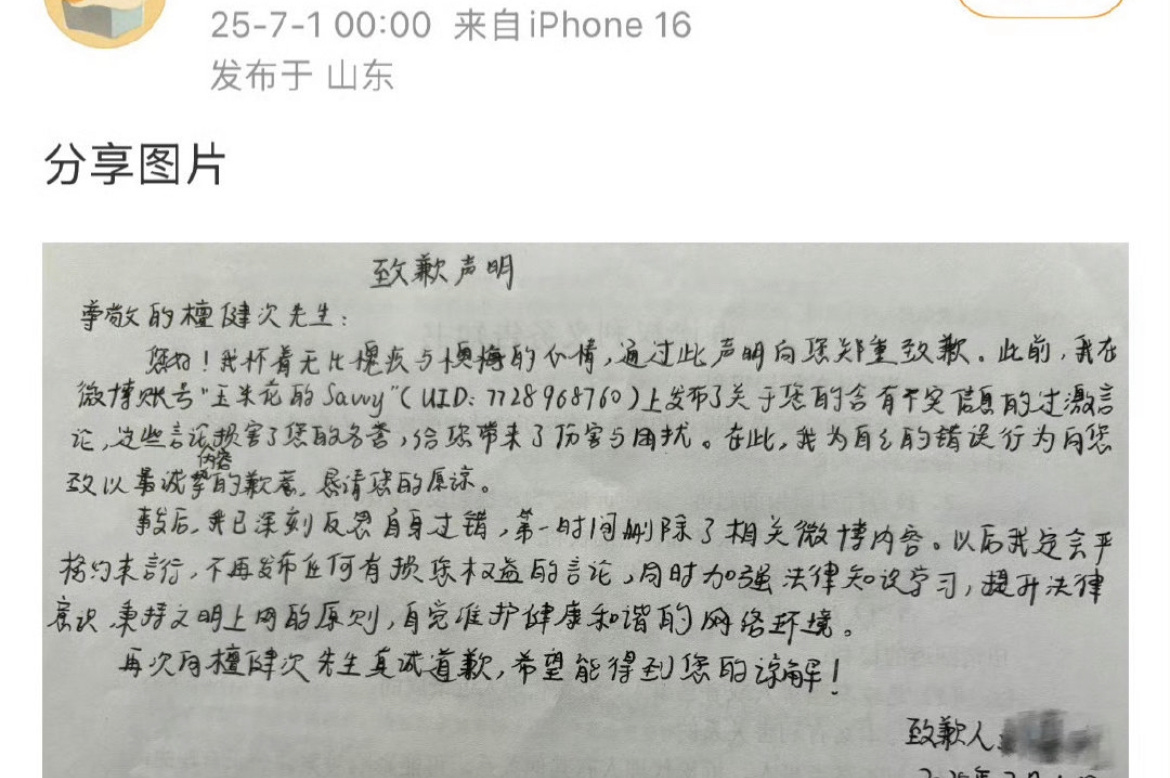 25-7-1 00:00 来自 iPhone 16
发布于 山东
分享图片
致歉声明
尊敬的檀健次先生：
您好！我怀着无比愧疚与懊悔的心情，通过此声明向您郑重致歉。此前，我在
微博账号“玉米花的Savvy”（UID：7728968760）上发布了关于您的含有不实信息的过激言
论，这些言论损害了您的名誉，给您带来了伤害与困扰。在此，我为自己的错误行为向您
致以最诚挚的歉意，恳请您的原谅。
事后，我已深刻反思自身过错，第一时间删除了相关微博内容。以后我定会严
格约束言行，不再发布任何有损您权益的言论，同时加强法律知识学习，提升法律
意识，秉持文明上网的原则，自觉维护健康和谐的网络环境。
再次向檀健次先生真诚道歉，希望能得到您的谅解！
致歉人